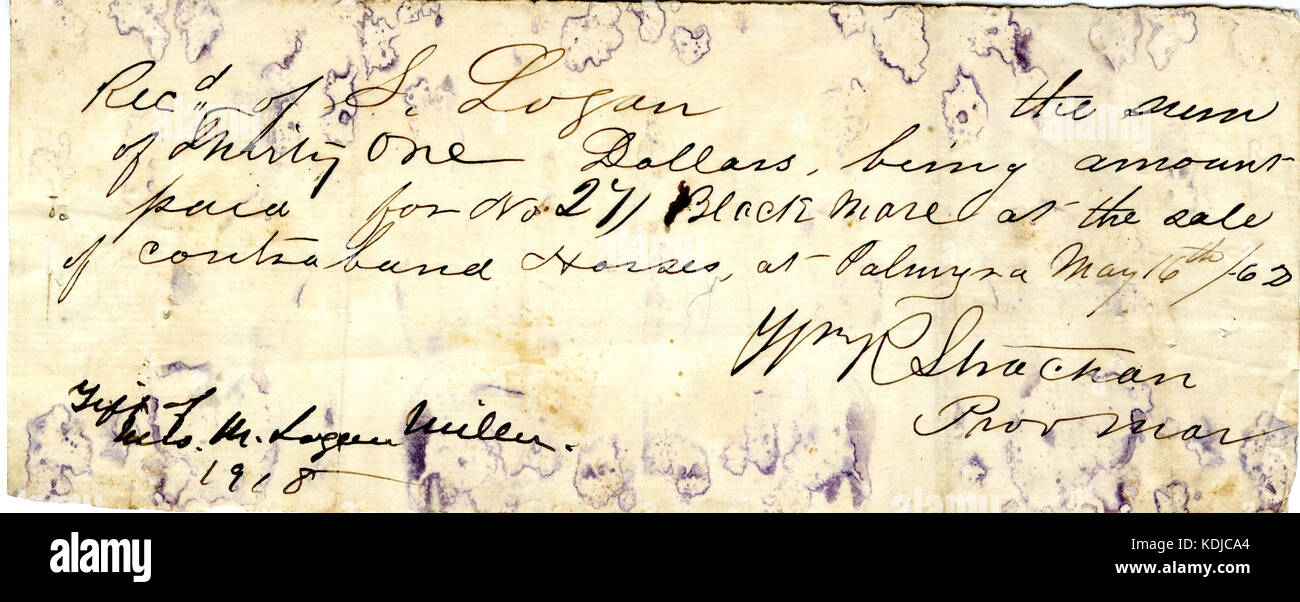 Recd of S. Logan the sum
of Thirty One Dollars, being amount
paid for No 27) Black Mare at the sale
of contraband Horses, at Palmyra May 16th /62
Wm R Strachan
Prov Mar
Gift of
Mrs. M. Logan Miller.
1918
alamy
Image ID: KDJCA4
www.alamy.com